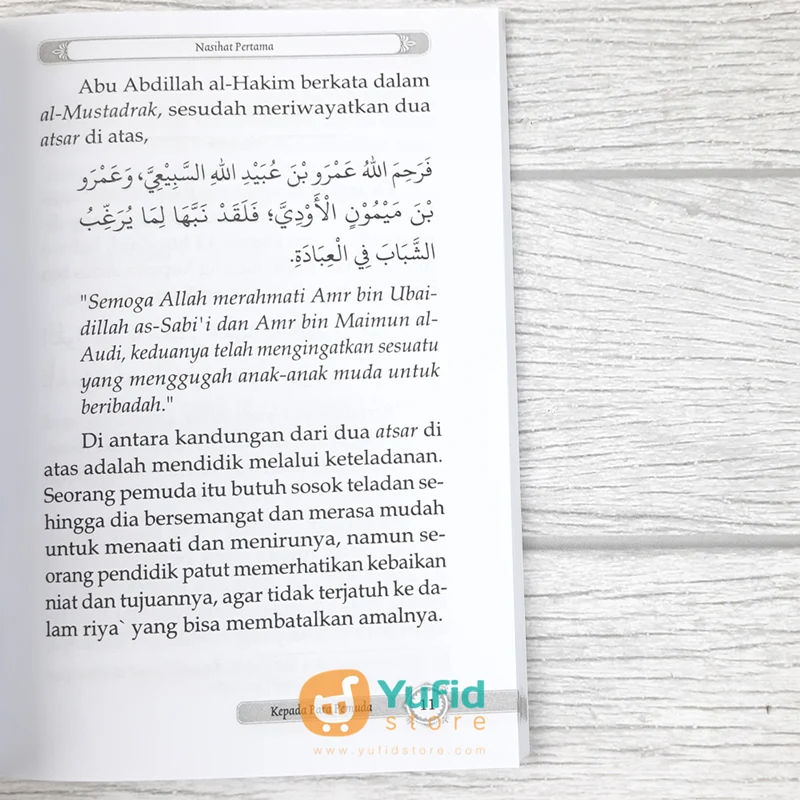 Nasihat Pertama
Abu Abdillah al-Hakim berkata dalam
al-Mustadrak, sesudah meriwayatkan dua
atsar di atas,
فَرَحِمَ اللهُ عَمْرَو بْنَ عُبَيْدِ اللهِ السَّبِيْعِيَّ، وَعَمْرَو
بْنَ مَيْمُوْنٍ الْأَوْدِيَّ؛ فَلَقَدْ نَبَّهَا لِمَا يُرَغِّبُ
الشَّبَابَ فِي الْعِبَادَةِ.
"Semoga Allah merahmati Amr bin Ubai-
dillah as-Sabi'i dan Amr bin Maimun al-
Audi, keduanya telah mengingatkan sesuatu
yang menggugah anak-anak muda untuk
beribadah."
Di antara kandungan dari dua atsar di
atas adalah mendidik melalui keteladanan.
Seorang pemuda itu butuh sosok teladan se-
hingga dia bersemangat dan merasa mudah
untuk menaati dan menirunya, namun se-
orang pendidik patut memerhatikan kebaikan
niat dan tujuannya, agar tidak terjatuh ke da-
lam riya` yang bisa membatalkan amalnya.
Kepada Para Pemuda
11
Yufid
store
www.yufidstore.com